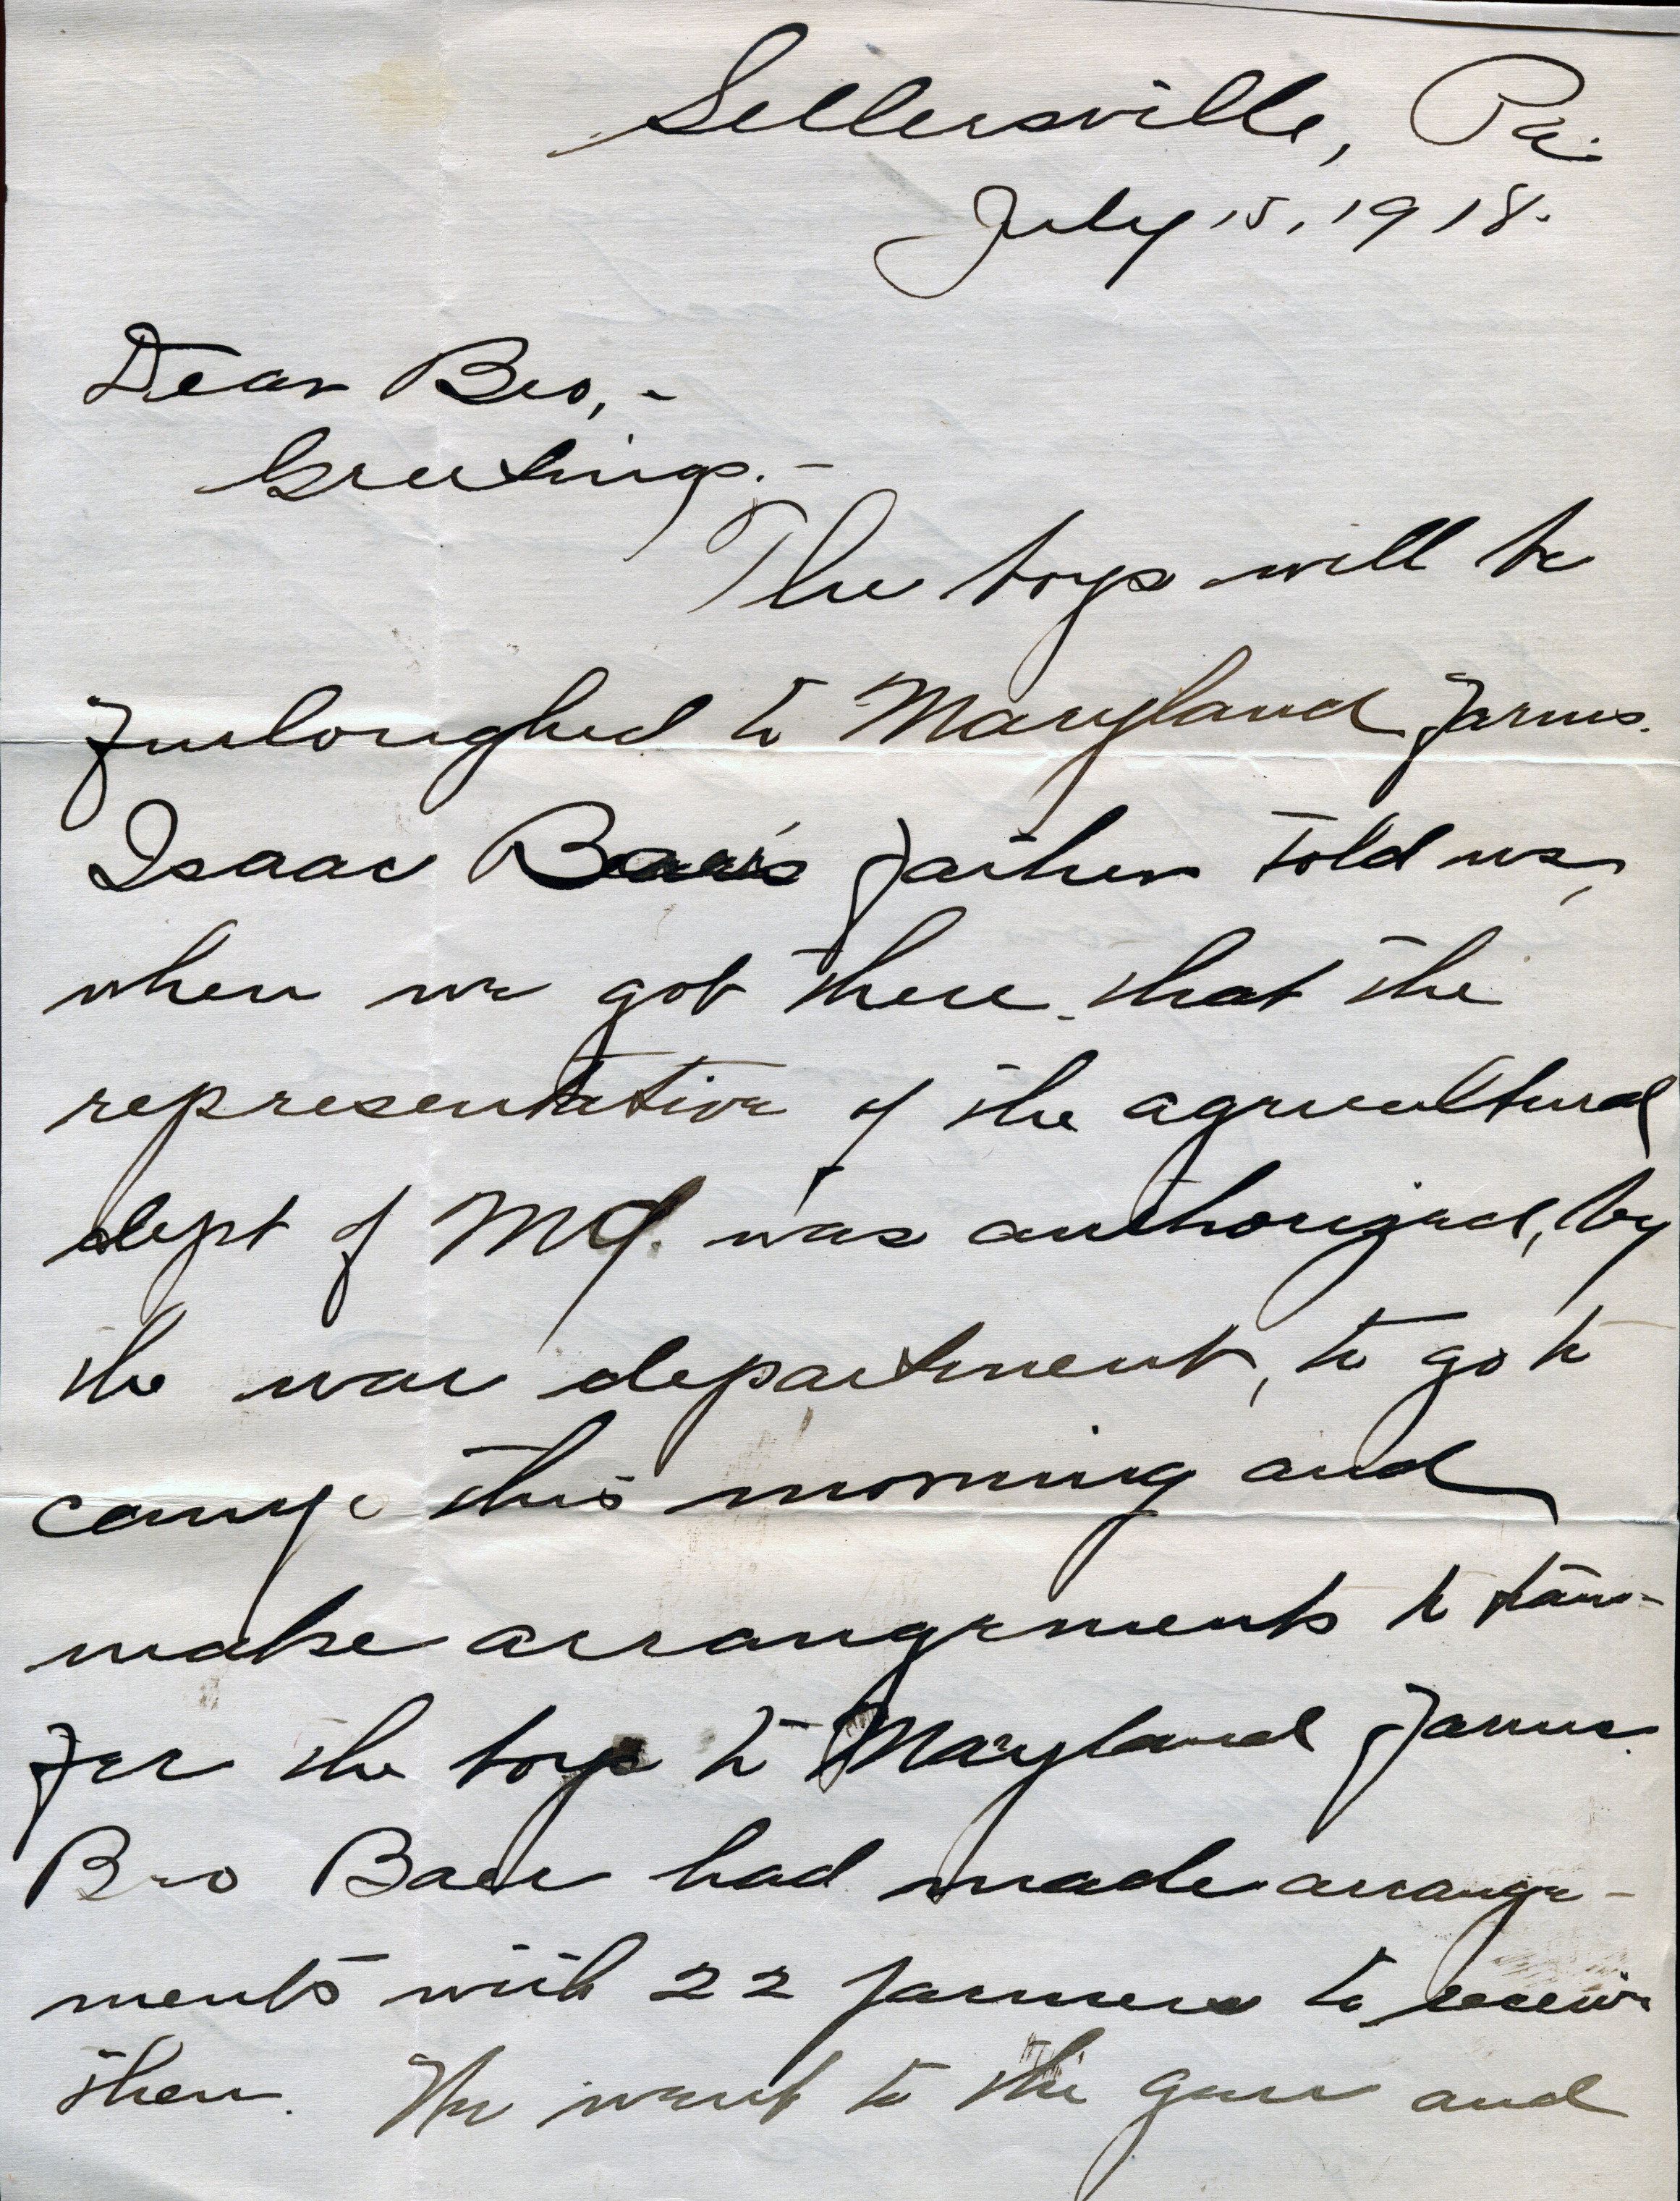 Sellersville, Pa.
July 15, 1918.
Dear Bro, -
Greetings. -
The boys will be
furloughed to Maryland farms.
Isaac Baer's father told us,
when we got there that the
representative of the agricultural
dept of Md. was authorized, by
the war department, to go to
camp this morning and
make arrangements to trans-
fer the boys to Maryland farms.
Bro Baer had made arrange-
ments with 22 farmers to receive
them. We went to the and